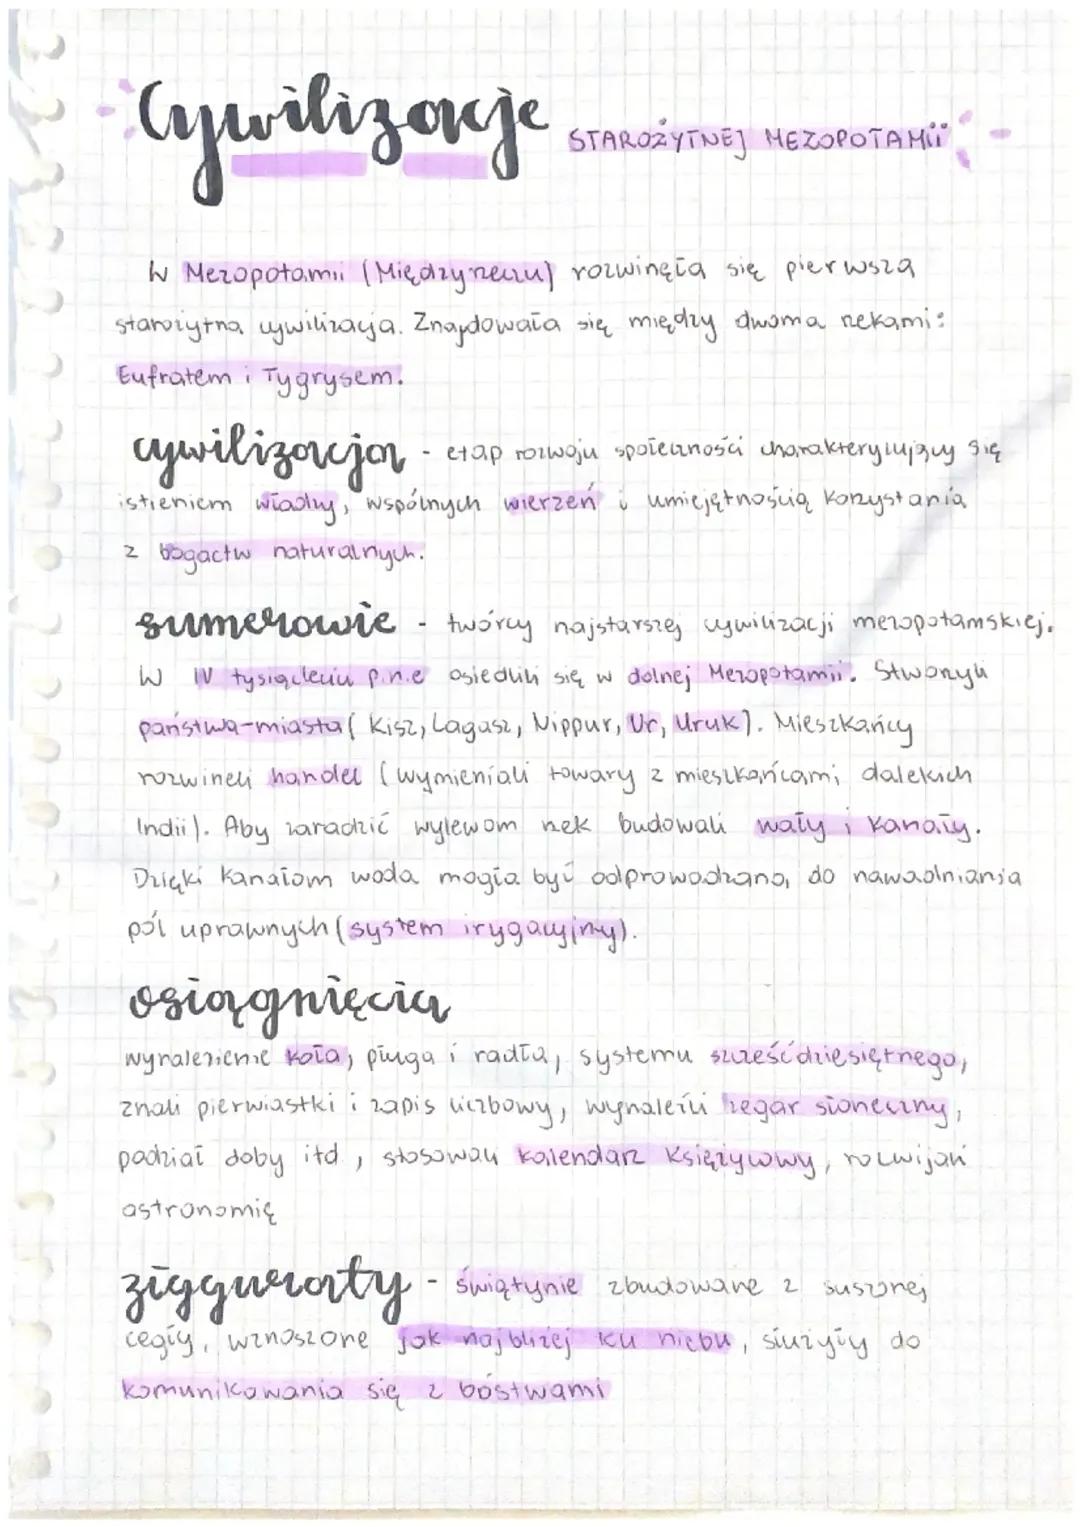 Cywilizacje STAROŻYTNEJ MEZOPOTAMii
W Mezopotamii (Międzyrzeczu) rozwinęła się pierwsza
starożytna cywilizacja. Znajdowała się między dwoma rzekami:
Eufratem i Tygrysem.
cywilizacja - etap rozwoju społeczności charakteryzujący się
istieniem władzy, wspólnych wierzeń i umiejętnością korzystania
z bogactw naturalnych.
sumerowie - twórcy najstarszej cywilizacji mezopotamskiej.
W IV tysiącleciu p.n.e osiedlili się w dolnej Mezopotamii. Stworzyli
państwa-miasta ( Kisz, Lagasz, Nippur, Ur, Uruk). Mieszkańcy
rozwineli handel (wymieniali towary z mieszkańcami dalekich
Indii). Aby zaradzić wylewom rzek budowali wały i kanały.
Dzięki kanałom woda mogła być odprowadzana do nawadniania
pól uprawnych (system irygacyjny).
osiągnięcia
wynalezienie koła, pługa i radła, systemu sześćdziesiętnego,
znali pierwiastki i zapis liczbowy, wynaleźli zegar słoneczny,
podział doby itd, stosowali kalendarz księżycowy, rozwijali
astronomię
ziggueraty - świątynie zbudowane z suszonej
cegły, wznoszone jak najbliżej ku niebu, służyły do
komunikowania się z bóstwami